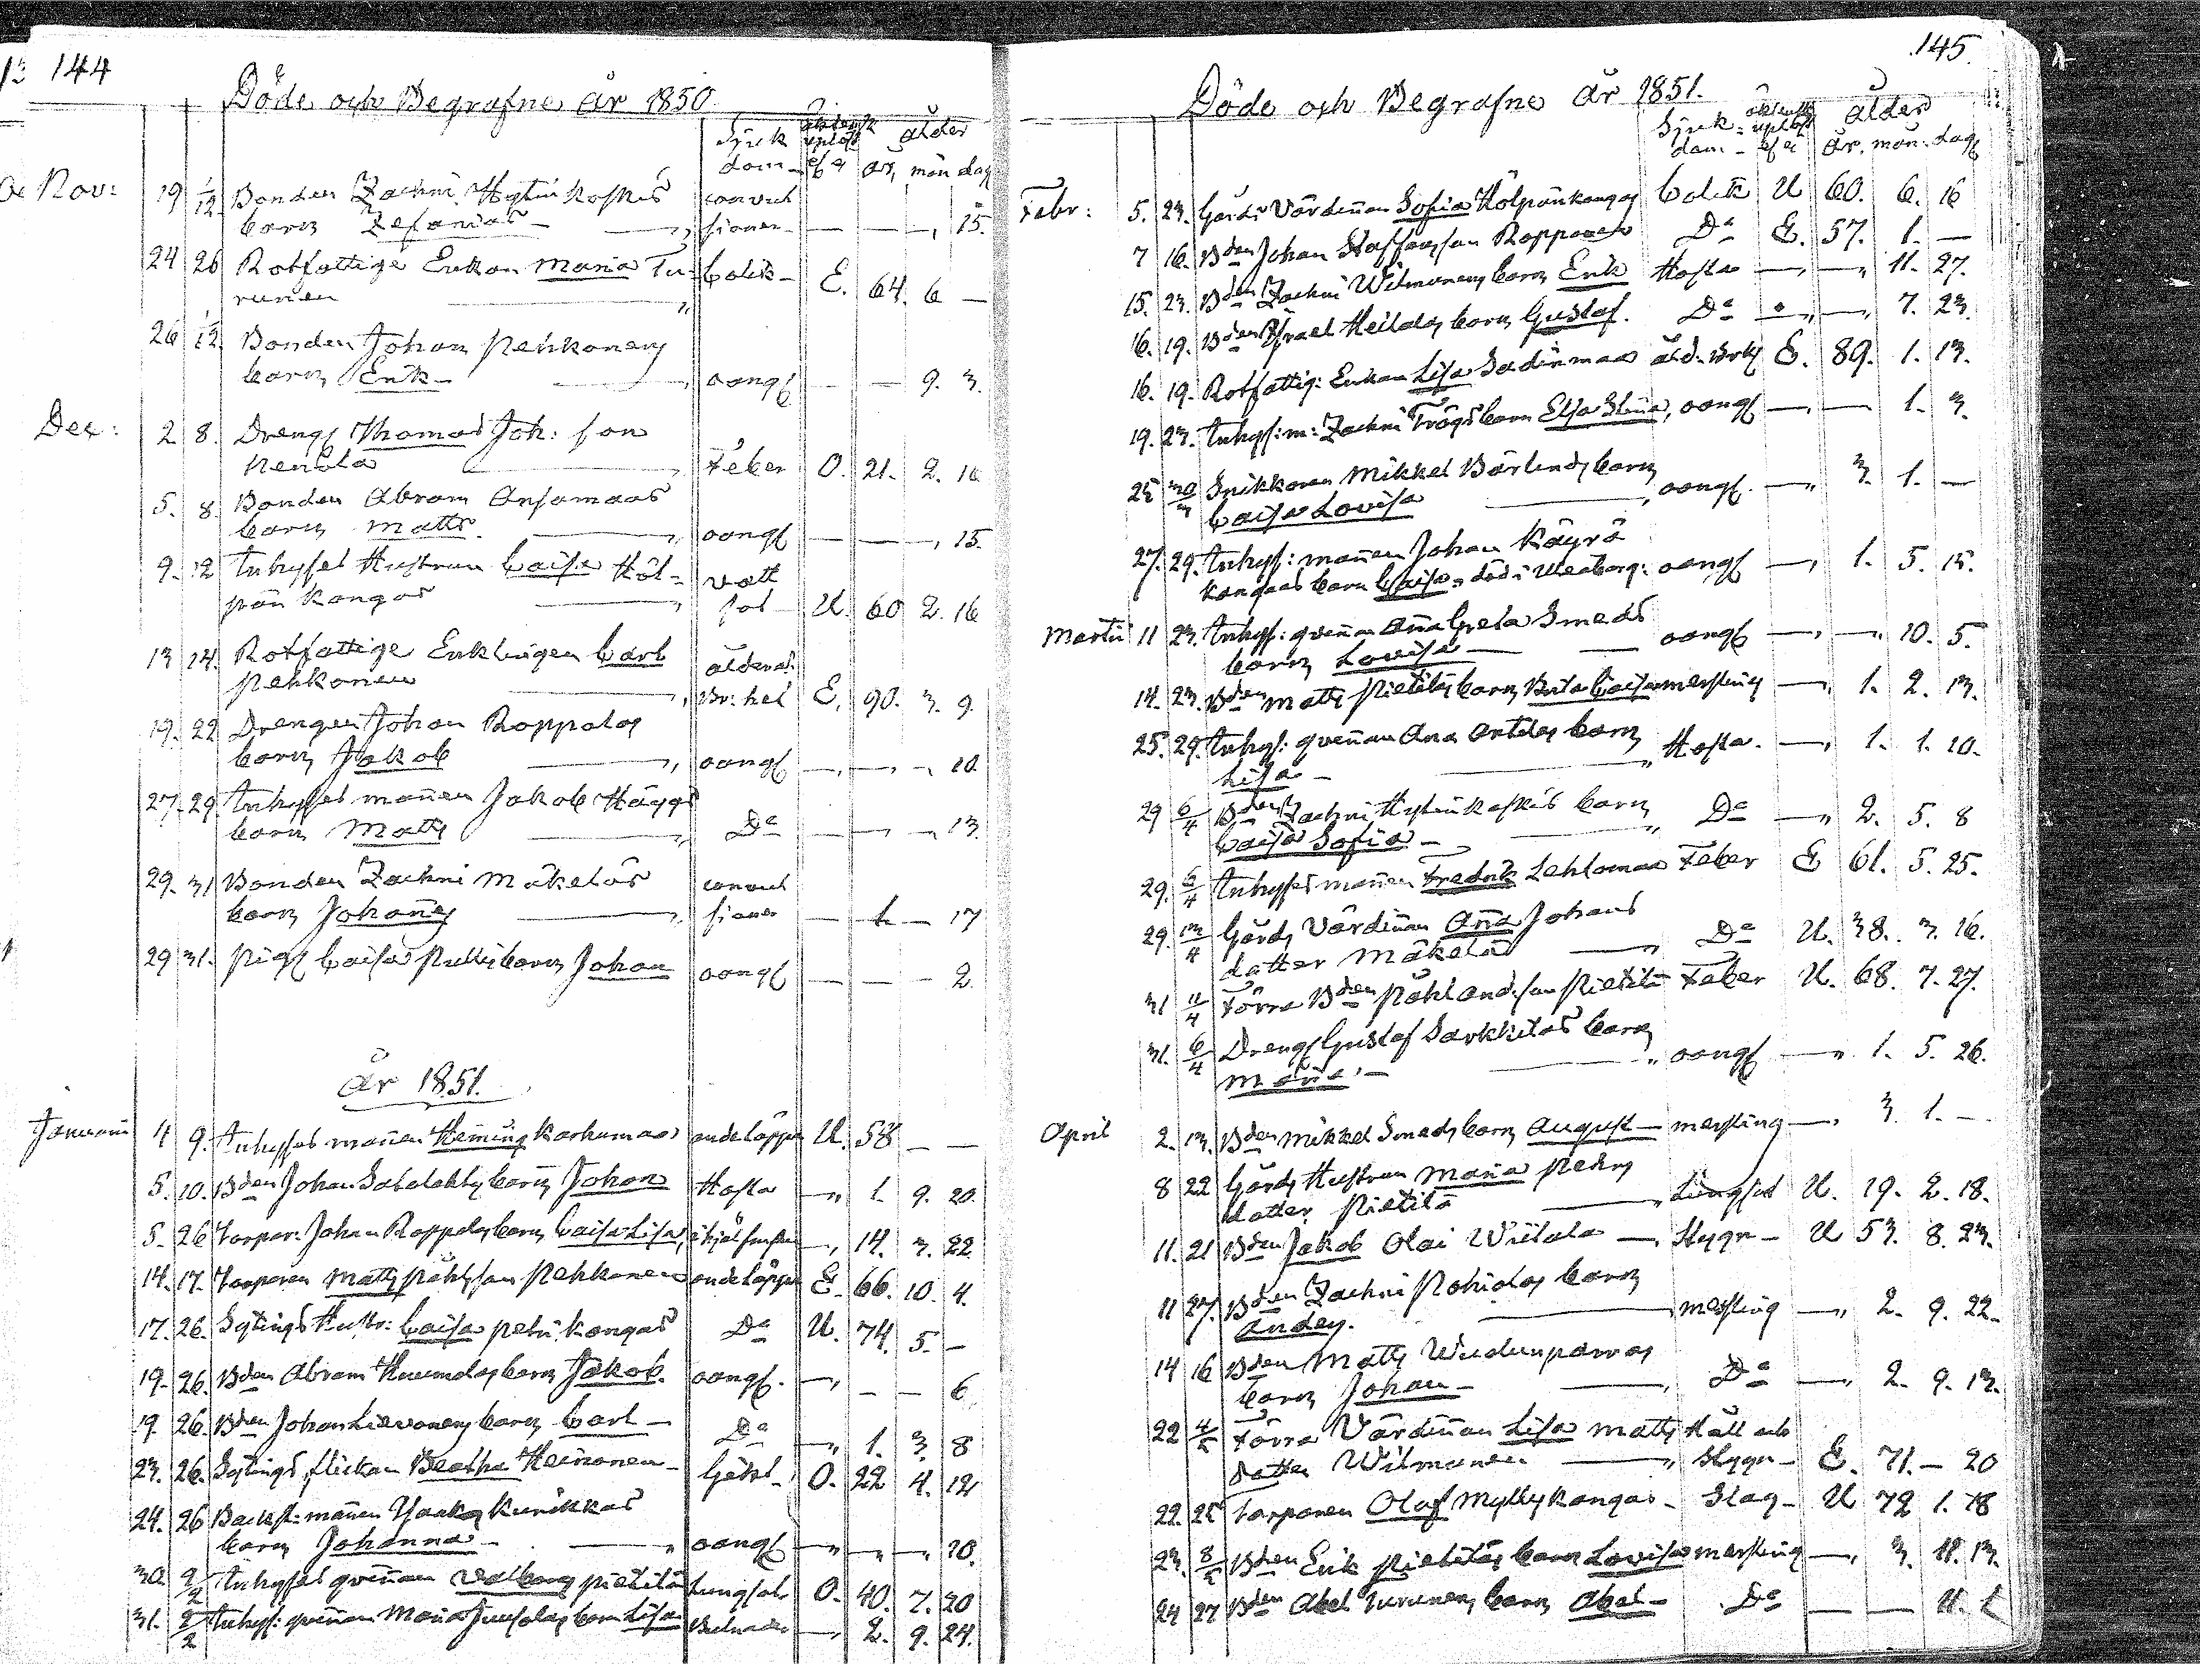 144
Döde och Begrafne år 1850
Sjuk dom ägtensk upløst ef a ålder år, mån dag
Nov: 19 1/12 Bonden Zachri Hytinkoskis convul
barn Zefanias sioner — — — 15.
24 26 Rotfattige Enkan Maria Tu- Colik E. 64. 6 —
runen
26 1/12 Bonden Johan Pehkonens
barn Erik oangf — — 9. 3.
Dec: 2 8. Drengf Thomas Joh: son
Kenttä Feber O. 21. 2. 10
5. 8. Bonden Abram Ansamaas
barn Matts oangf — — — 15.
9. 12 Inhyses Hustrun Caisa Höl- vatt
pän Kangas sot U. 60 2. 16
13 14. Rotfattige Enklingen Carl ålderds
Pehkonen Br: het E. 90. 3. 9.
19. 22 Drengen Johan Roppolas
barn Jakob oangf — — — 10.
27. 29 Inhyses mannen Jakob Häggs
barn Matts Do — — — 13.
29. 31 Bonden Zachri Mäkeläs convul
barn Johannes sioner — 1. — 17
29 31. Pigf Caisa Pullis barn Johan oangf — — — 2.
År 1851.
Januari 4 9. Inhyses mannen Heming Karhumaa andetäppa U. 58 — —
5. 10. Bden Johan Sotalahtis barn Johan Hosta — 1. 9. 20.
5. 26 Torpar: Johan Roppolas barn Caisa Lisa, — 14. 3. 22
14. 17. Torparen Matts Påhlsson Pehkonen andetäppa E. 66. 10. 4.
17. 26. Sytings Hustr: Caisa Petri Kangas Do U. 74. 5. —
19. 26. Bden Abram barn Jakob. oangf. — — — 6
19. 26. Bden Johan Lievonens barn Carl Do — 1. 3. 8
23. 26. Sytings flickan Beatha Heinonen O. 22 4. 12
24. 26 Backst: mannen Kurikkas
barn Johanna oangf — — — 20.
30 2/2 Inhyses qvinnan Valborg Pietilä Lungsot O. 40. 7. 20
31. 2/2 Inhys: qvinnan Maria Juusolas barn Lisa — 2. 9. 24.
145.
Döde och Begrafne år 1851.
Sjuk- dom ägtensk uplöst ef a ålder år. mån: dag
Febr: 5. 23. Gårds Värdinnan Sofia Hölpänkangas Colik U 60. 6. 16
7 16. Bden Johan Staffansson Ropponen Do E. 57. 1. —
15. 23. Bden Zachri Wilmunens barn Erik Hosta — — 11. 27.
16. 19. Bden Israel Heilolas barn Gustaf. Do — — 7. 23.
16. 19. Rotfattig: Enkan Lisa Sadinmaa åld: Brtz E. 89. 1. 13.
19. 23. Inhys: m: Zachri Trögs barn Elsa Stina, oangf — — 1. 3.
25 30/3 Snikkaren Mikkel Bärlunds barn
Caisa Lovisa oangf. — 3. 1. —
27. 29. Inhys: mannen Johan Käyrä
kangaas barn Caisa, död i Uleaborg: oangf — 1. 5. 15.
Martii 11 23. Inhys: qvinnan Anna Greta Smeds
barn Lovisa oangf — — 10. 5.
14. 23. Bden Matts Pietiläs barn Brita Caisa messling — 1. 2. 13.
25. 29. Inhys: qvinnan Ana Antilas barn
Lisa Hosta. — 1. 1. 10.
29 6/4 Bden Zachri Hytinkoskis barn
Caisa Sofia Do — 2. 5. 8
29. 6/4 Inhyses mannen Fredrik Lehtomaa Feber E 61. 5. 25.
29. 13/4 Gårds Värdinnan Anna Johans
datter Mäkelä Do U. 38. 3. 16.
31 11/4 Förra Bden Påhl And:son Pietilä Feber U. 68. 7. 27.
31. 6/4 Drengf Gustaf Sarkkilas barn
Maria oangf — 1. 5. 26.
April 2. 13. Bden Mikkel Smeds barn August messling — 3. 1. —
8 22 Gårds Hustrun Maria Pehrs
datter Pietilä Lungsot U. 19. 2. 18.
11. 21 Bden Jakob Olai Wiitala Stygn U 53. 8. 23.
11 27. Bden Zachri Pohiolas barn
Anders. messling — 2. 9. 22.
14 16 Bden Matts Wiedunparras
barn Johan Do — 2. 9. 13.
22 4/5 Förra Värdinnan Lisa Matts Håll och
datter Wilmunen Stygn E. 71. — 20
22. 25 Torparen Olof Myllykangas Slag U 72 1. 18
23. 8/5 Bden Erik Pietiläs barn Lovisa messling — 3. 11. 13.
24 27 Bden Abel Turunens barn Abel Do — — 11. 1